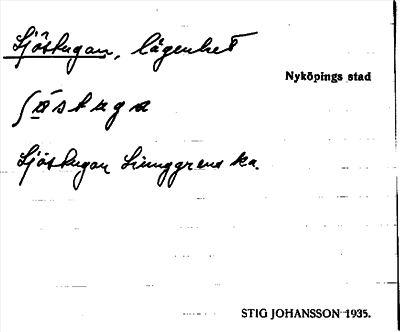 Sjöstugan, lägenhet
Nyköpings stad
Sjöstugan Linnggrens ka.
STIG JOHANSSON 1935.